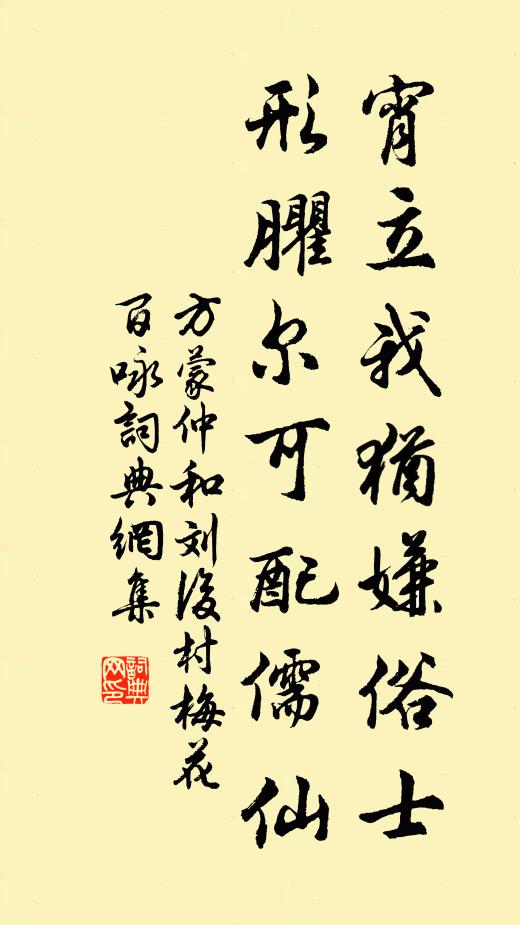 宵立我犹嫌俗士
形臞尔可配儒仙
方蒙仲和刘後村梅花
百咏詞典網集
詞典網印